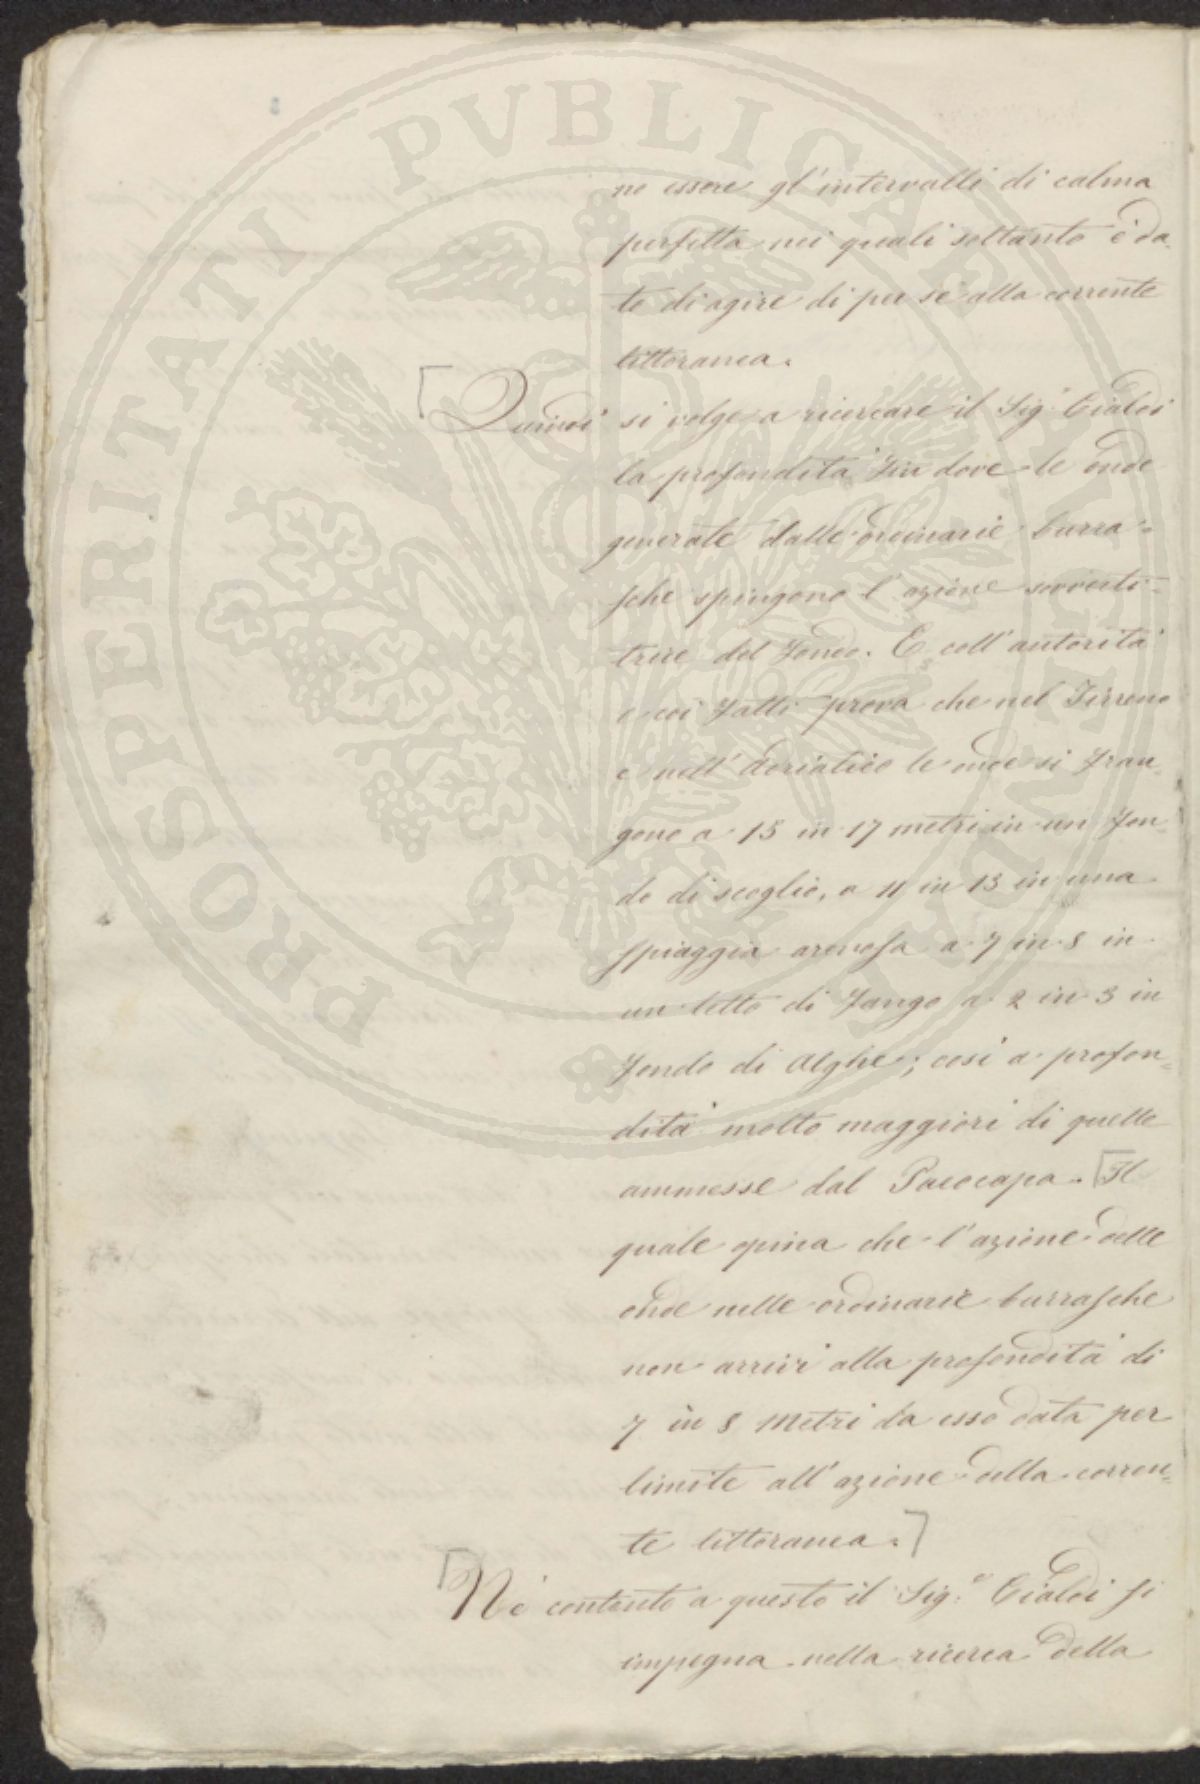 PROSPERITATI PVBLICAE AVGENDAE
no essere gl'intervalli di calma
perfetta nei quali soltanto è da-
to di agire di per sè alla corrente
littoranea.
Quindi si volge a ricercare il Sig.r Cialdi
la profondità fin dove le onde
generate dalle ordinarie burra=
sche spingono l'azione sovverti=
trice del fondo. E coll'autorità
e coi fatti prova che nel Tirreno
e nell'Adriatico le onde si fran=
gono a 15 in 17 metri in un fon=
do di scoglio, a 11 in 13 in una
spiaggia arenosa a 7 in 8 in
un letto di fango a 2 in 3 in
fondo di Alghe; così a profon=
dità molto maggiori di quelle
ammesse dal Paleocapa. Il
quale opina che l'azione delle
onde nelle ordinarie burrasche
non arrivi alla profondità di
7 in 8 Metri da esso data per
limite all'azione della corren=
te littoranea.
Nè contento a questo il Sig.r Cialdi si
impegna nella ricerca della